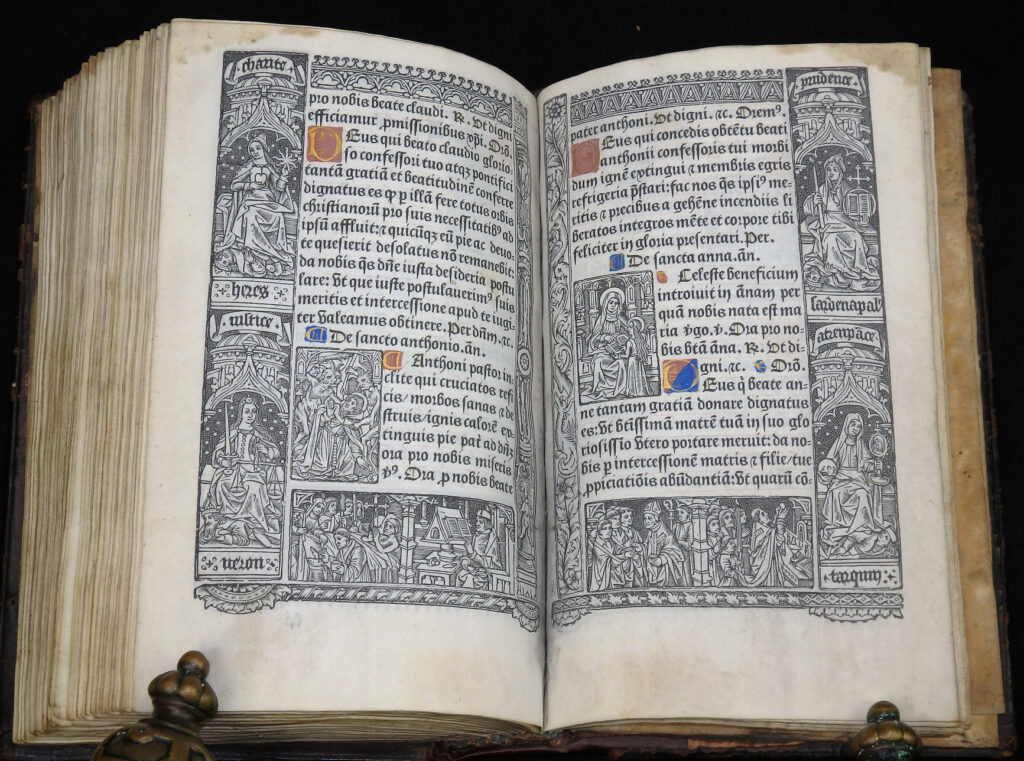 charite
heres
iustice
neron
pro nobis beate claudi. R. Ut digni
efficiamur ꝓmissionibus xp̄i. Or̄o.
Deus qui beato claudio glorio
so confessori tuo atqꝫ pontifici
tantā gratiā et beatitudinē conferre
dignatus es ꝙ ꝑ illā fere totus orbis
christianorū pro suis necessitatibꝰ ad
ipsū affluit: ⁊ quicūqꝫ eū pie ac deuo
te quesierit desolatus nō remanebit:
da nobis q̄s dn̄e iusta desideria postu
lare: Ut que iuste postulauerimꝰ suis
meritis et intercessione apud te iugi
ter valeamus obtinere. Per dn̄m. ⁊c.
De sancto anthonio. an̄.
Anthoni pastor in
clite qui cruciatos refi
cis/ morbos sanas ⁊ de
struis/ ignis calorē ex
tinguis pie pat̄ ad dn̄ꝫ
ora pro nobis miseris
Ora ꝓ nobis beate
pater anthoni. Ut digni. ⁊c. Oremꝰ.
Deus qui concedis obtētu beati
anthonii confessoris tui morbi
dum ignē extingui ⁊ membris egris
refrigeria p̄stari: fac nos q̄s ipsiꝰ me-
ritis ⁊ precibus a gehēne incendiis li
beratos integros mēte et corpore tibi
feliciter in gloria presentari. Per.
De sancta anna. an̄.
Celeste beneficium
introiuit in ānam per
quā nobis nata est ma
ria ꝟgo. ꝟ. Ora pro no-
bis bt̄ā āna. R. Ut di-
gni. ⁊c. Or̄o.
Deus q̇ beate an-
ne tantam gratiā donare dignatus
es: Ut bt̄issimā matrē tuā in suo glo
riosissio vtero portare meruit: da no-
bis ꝑ intercessionē matris ⁊ filie/ tue
ꝓpiciatiōis abūdantiā: Ut quarū cō-
prudence
sardenapalꝰ
atrenpāce
tarquin